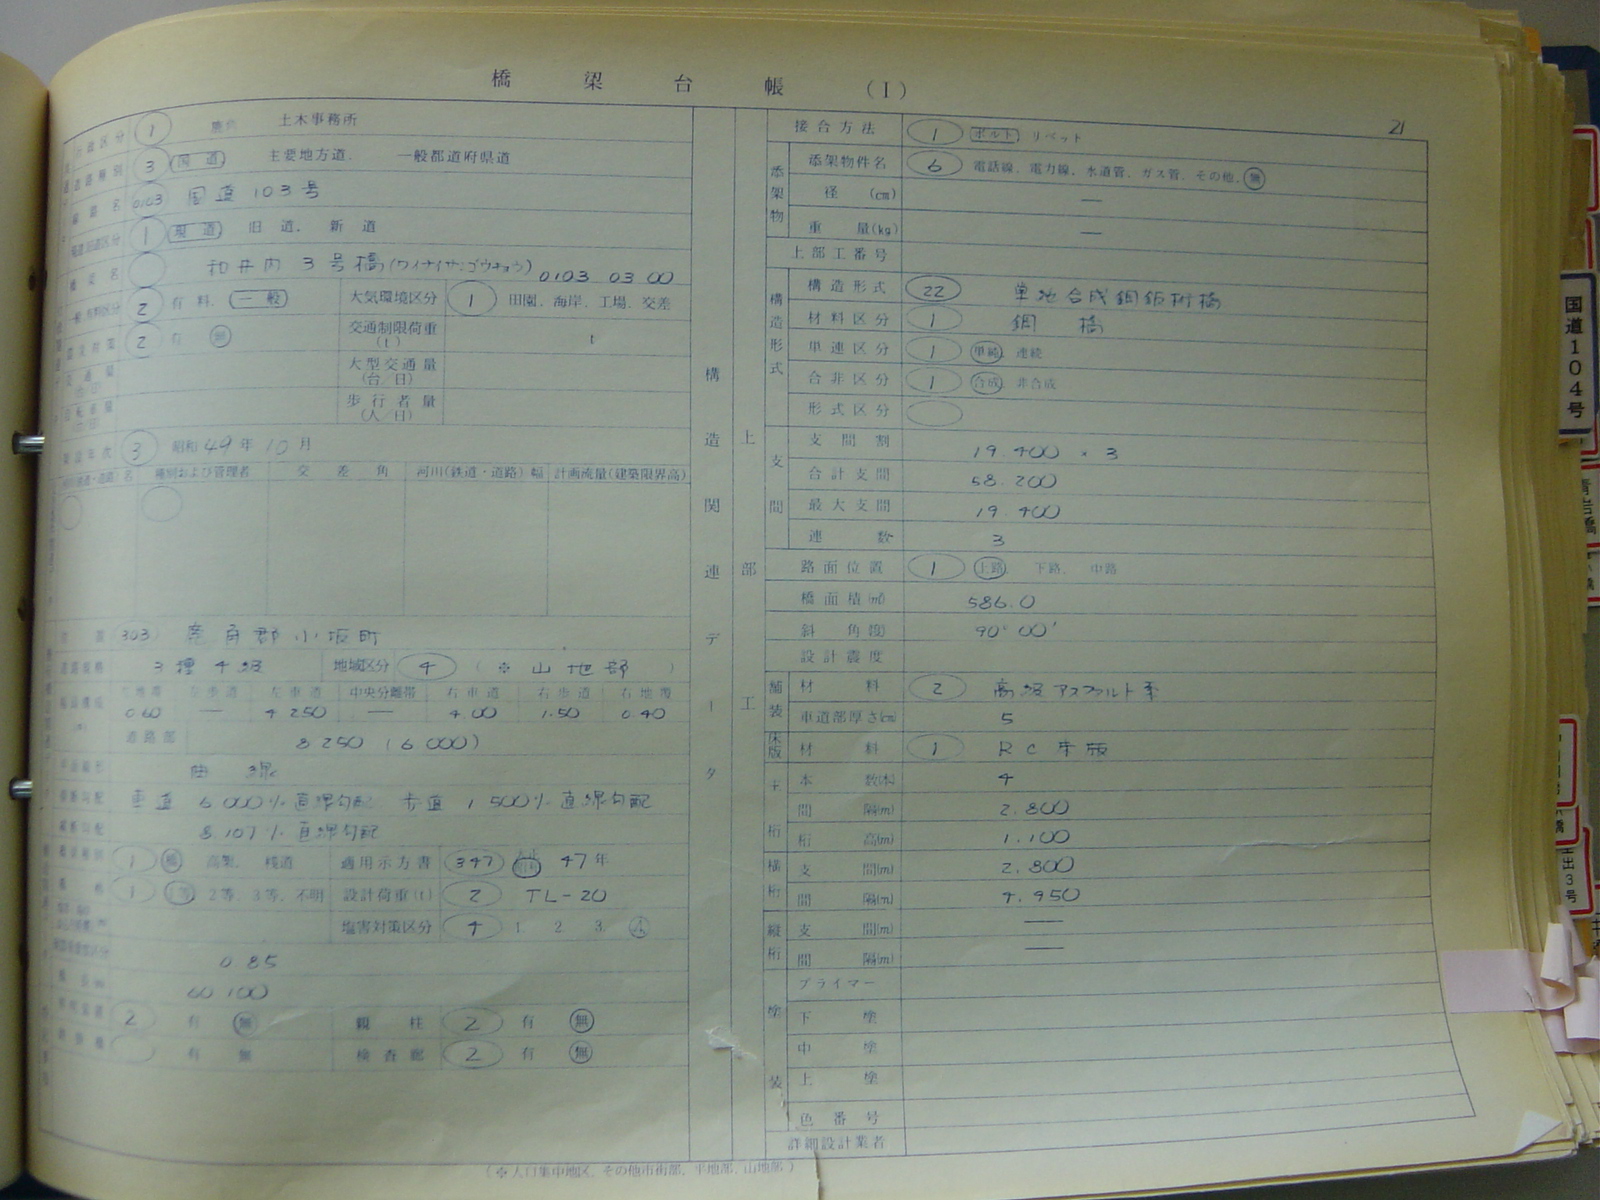 橋梁台帳(I)
21
1 鹿角 土木事務所
3 国道 主要地方道. 一般都道府県道
0103 国道103号
1 現道 旧道. 新道
和井内3号橋(ワイナイサンゴウキョウ) 0103 03 00
2 有料. 一般 大気環境区分 1 田園. 海岸. 工場. 交差
2 有 無 交通制限荷重(t) t
大型交通量(台/日)
歩行者量(人/日)
3 昭和49年10月
種別および管理者 交差角 河川(鉄道・道路)幅 計画流量(建築限界高)
303 鹿角郡小坂町
3種4級 地域区分 4 (※山地部)
左歩道 左車道 中央分離帯 右車道 右歩道 右地覆
0.60 — 4.250 — 4.00 1.50 0.40
道路部 8.250 (6.000)
曲線
車道 6.000% 直線勾配 歩道 1.500% 直線勾配
8.107% 直線勾配
1 橋 高架. 桟道 適用示方書 347 昭和 47年
1 1等 2等. 3等. 不明 設計荷重(t) 2 TL-20
塩害対策区分 4 1 2 3. 4
0.85
60.100
2 有 無 親柱 2 有 無
有 無 検査廊 2 有 無
(※人口集中地区, その他市街部, 平地部, 山地部)
構造関連データ
上部工
接合方法 1 ボルト リベット
添架物 添架物件名 6 電話線. 電力線. 水道管. ガス管. その他. 無
径 (cm) —
重量(kg) —
上部工番号
構造形式 構造形式 22 単純合成鋼鈑桁橋
材料区分 1 鋼橋
単連区分 1 単純 連続
合非区分 1 合成 非合成
形式区分
支間 支間割 19.400 × 3
合計支間 58.200
最大支間 19.400
連数 3
路面位置 1 上路. 下路. 中路
橋面積(㎡) 586.0
斜角(度) 90°00′
設計震度
舗装 材料 2 高級アスファルト系
車道部厚さ(cm) 5
床版 材料 1 RC床版
主桁 本数(本) 4
間隔(m) 2.800
桁高(m) 1.100
横桁 支間(m) 2.800
間隔(m) 4.950
縦桁 支間(m) —
間隔(m) —
塗装 プライマー
下塗
中塗
上塗
色番号
詳細設計業者
国道104号
青岩橋
小橋
土出3号